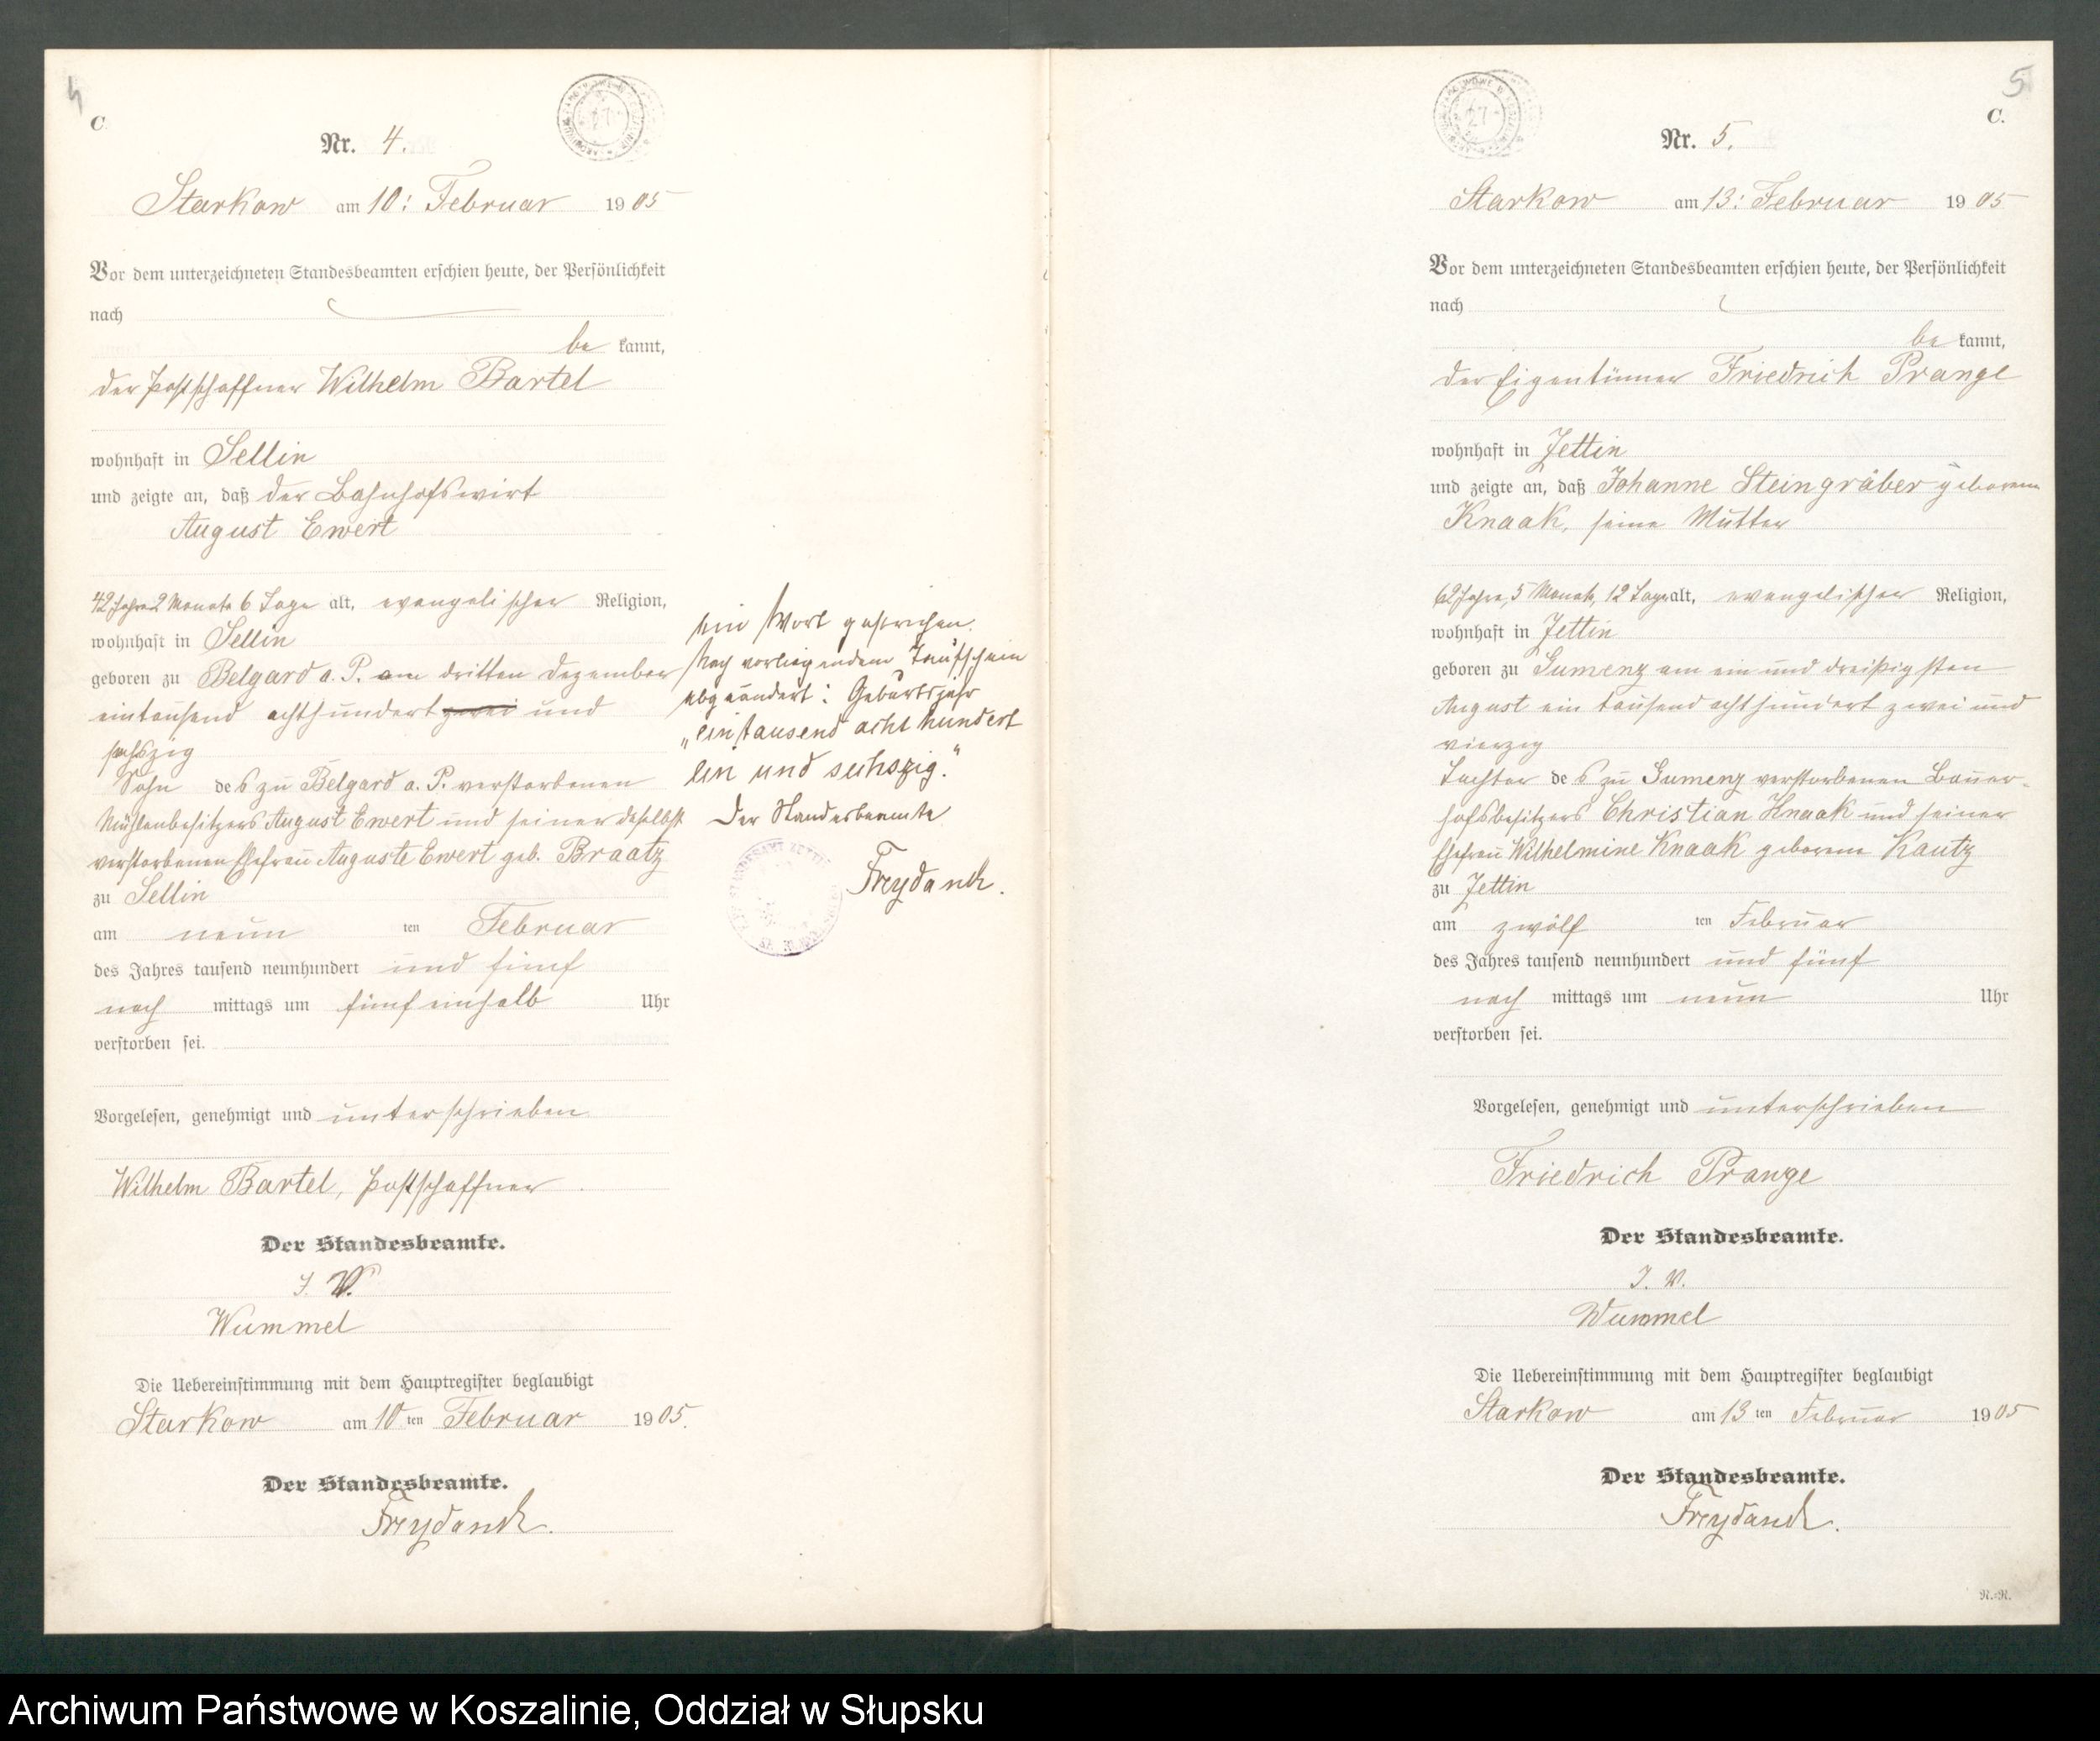 4
C.
Nr. 4.
Starkow am 10: Februar 1905
Vor dem unterzeichneten Standesbeamten erschien heute, der Persönlichkeit
nach
be kannt,
der Postschaffner Wilhelm Bartel
wohnhaft in Sellin
und zeigte an, daß der Bahnhofswirt
August Ewert
42 Jahre 2 Monate 6 Tage alt, evangelischer Religion,
wohnhaft in Sellin
geboren zu Belgard a. P. am dritten Dezember
eintausend achthundert zwei und
sechszig
Sohn des zu Belgard a. P. verstorbenen
Mühlenbesitzers August Ewert und seiner daselbst
verstorbenen Ehefrau Auguste Ewert geb. Braatz
zu Sellin
am neun ten Februar
des Jahres tausend neunhundert und fünf
nach mittags um fünf einhalb Uhr
verstorben sei.
Vorgelesen, genehmigt und unterschrieben
Wilhelm Bartel, Postschaffner
Der Standesbeamte.
J. V.
Wummel
Die Uebereinstimmung mit dem Hauptregister beglaubigt
Starkow am 10 ten Februar 1905.
Der Standesbeamte.
Freydanck.
ein Wort gestrichen.
Nach vorliegendem Taufschein
abgeändert: Geburtsjahr
„eintausend acht hundert
ein und sechszig."
Der Standesbeamte
Freydanck.
5
C.
Nr. 5.
Starkow am 13: Februar 1905
Vor dem unterzeichneten Standesbeamten erschien heute, der Persönlichkeit
nach
be kannt,
der Eigentümer Friedrich Prange
wohnhaft in Jettin
und zeigte an, daß Johanne Steingräber geborene
Knaak, seine Mutter
62 Jahre, 5 Monate, 12 Tage alt, evangelischer Religion,
wohnhaft in Jettin
geboren zu Sumenz am ein und dreißigsten
August ein tausend achthundert zwei und
vierzig
Tochter des zu Sumenz verstorbenen Bauer-
hofsbesitzers Christian Knaak und seiner
Ehefrau Wilhelmine Knaak geborene Kautz
zu Jettin
am zwölf ten Februar
des Jahres tausend neunhundert und fünf
nach mittags um neun Uhr
verstorben sei.
Vorgelesen, genehmigt und unterschrieben
Friedrich Prange
Der Standesbeamte.
J. V.
Wummel
Die Uebereinstimmung mit dem Hauptregister beglaubigt
Starkow am 13 ten Februar 1905
Der Standesbeamte.
Freydanck.
R.:R.
Archiwum Państwowe w Koszalinie, Oddział w Słupsku